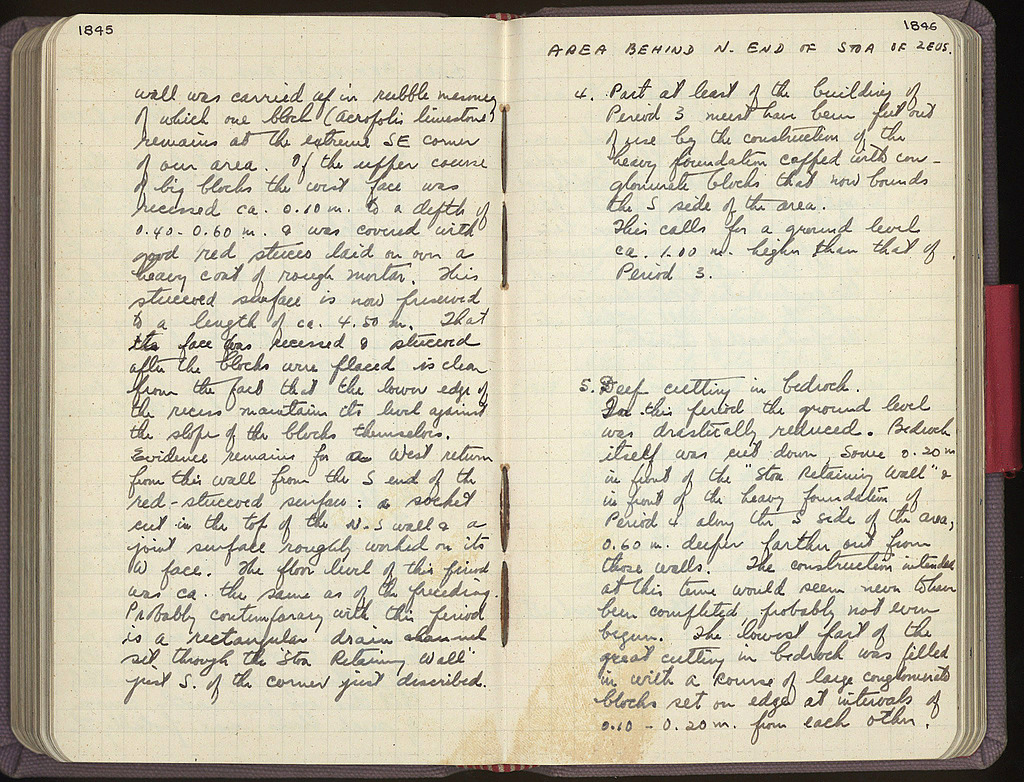 1845
wall was carried up in rubble masonry
of which one block (Acropolis limestone)
remains at the extreme SE corner
of our area. Of the upper course
of big blocks the west face was
recessed ca. 0.10 m. to a depth of
0.40-0.60 m. & was covered with
good red stucco laid on over a
heavy coat of rough mortar. This
stuccoed surface is now preserved
to a length of ca. 4.50 m. That
the face was recessed & stuccoed
after the blocks were placed is clear
from the fact that the lower edge of
the recess maintains its level against
the slope of the blocks themselves.
Evidence remains for a West return
from this wall from the S end of the
red-stuccoed surface: a socket
cut in the top of the N-S wall & a
joint surface roughly worked on its
W face. The floor level of this period
was ca. the same as of the preceding.
Probably contemporary with this period
is a rectangular drain channel
set through the "Stoa Retaining Wall"
just S. of the corner just described.
1846
AREA BEHIND N. END OF STOA OF ZEUS.
4. Part at least of the building of
Period 3 must have been put out
of use by the construction of the
heavy foundation capped with con-
glomerate blocks that now bounds
the S side of the area.
This calls for a ground level
ca. 1.00 m. higher than that of
Period 3.
5. Deep cutting in bedrock.
In this period the ground level
was drastically reduced. Bedrock
itself was cut down some 0.20 m
in front of the "Stoa Retaining Wall" &
in front of the heavy foundation of
Period 4 along the S side of the area,
0.60 m. deeper farther out from
those walls. The construction intended
at this time would seem never to have
been completed, probably not even
begun. The lowest part of the
great cutting in bedrock was filled
in with a course of large conglomerate
blocks set on edge at intervals of
0.10 - 0.20 m. from each other.